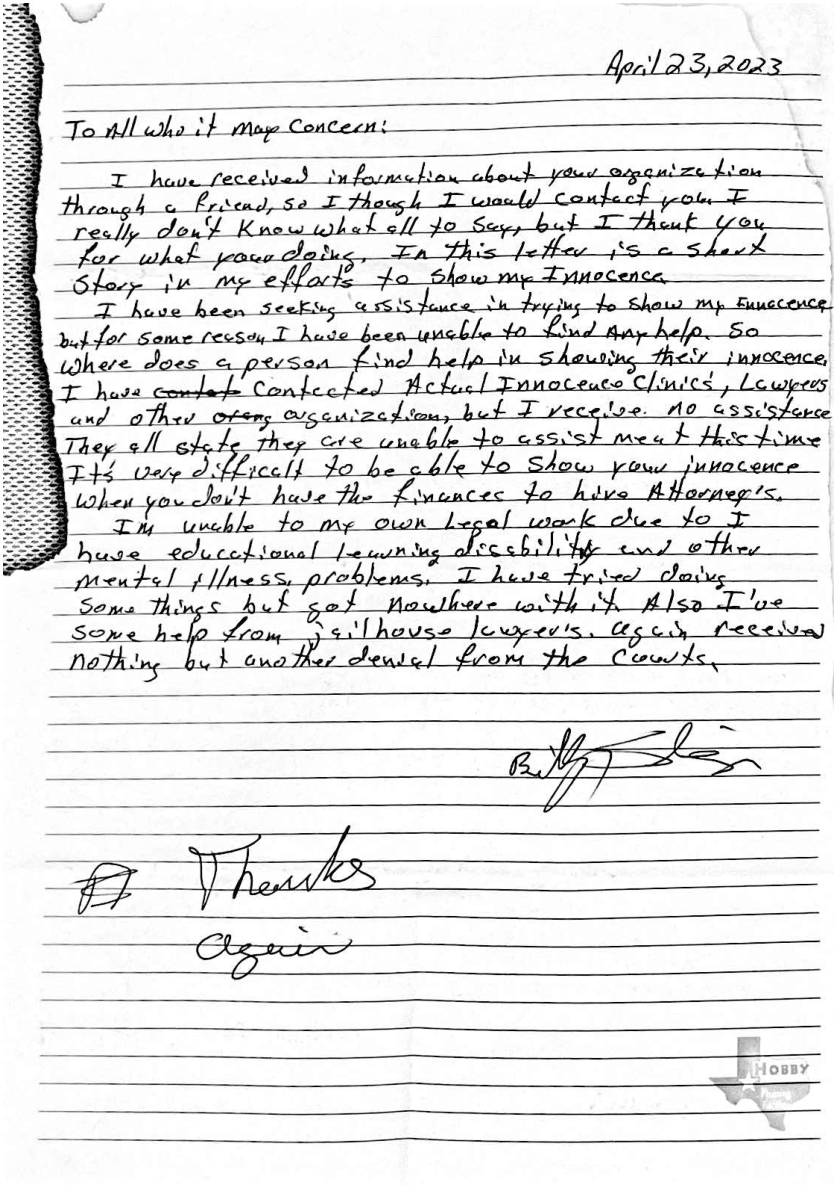 April 23, 2023
To All who it may Concern:
I have received information about your organization
through a friend, so I though I would contact you. I
really don't know what all to say, but I thank you
for what your doing. In this letter is a short
Story in my efforts to show my Innocence
I have been seeking assistance in trying to show my Innocence
but for some reason I have been unable to find Any help. So
where does a person find help in showing their innocence.
I have Contacted Actual Innocence Clinics', Lawyers
and other organization, but I receive no assistance
They all state they are unable to assist me at this time
It's very difficult to be able to show your innocence
when you don't have the finances to hire Attorney's.
I'm unable to my own Legal work due to I
have educational learning disability and other
mental illness, problems. I have tried doing
some things but got nowhere with it. Also I've
some help from jailhouse lawyer's. again received
nothing but another denial from the Courts.
Billy
Thanks
again
HOBBY